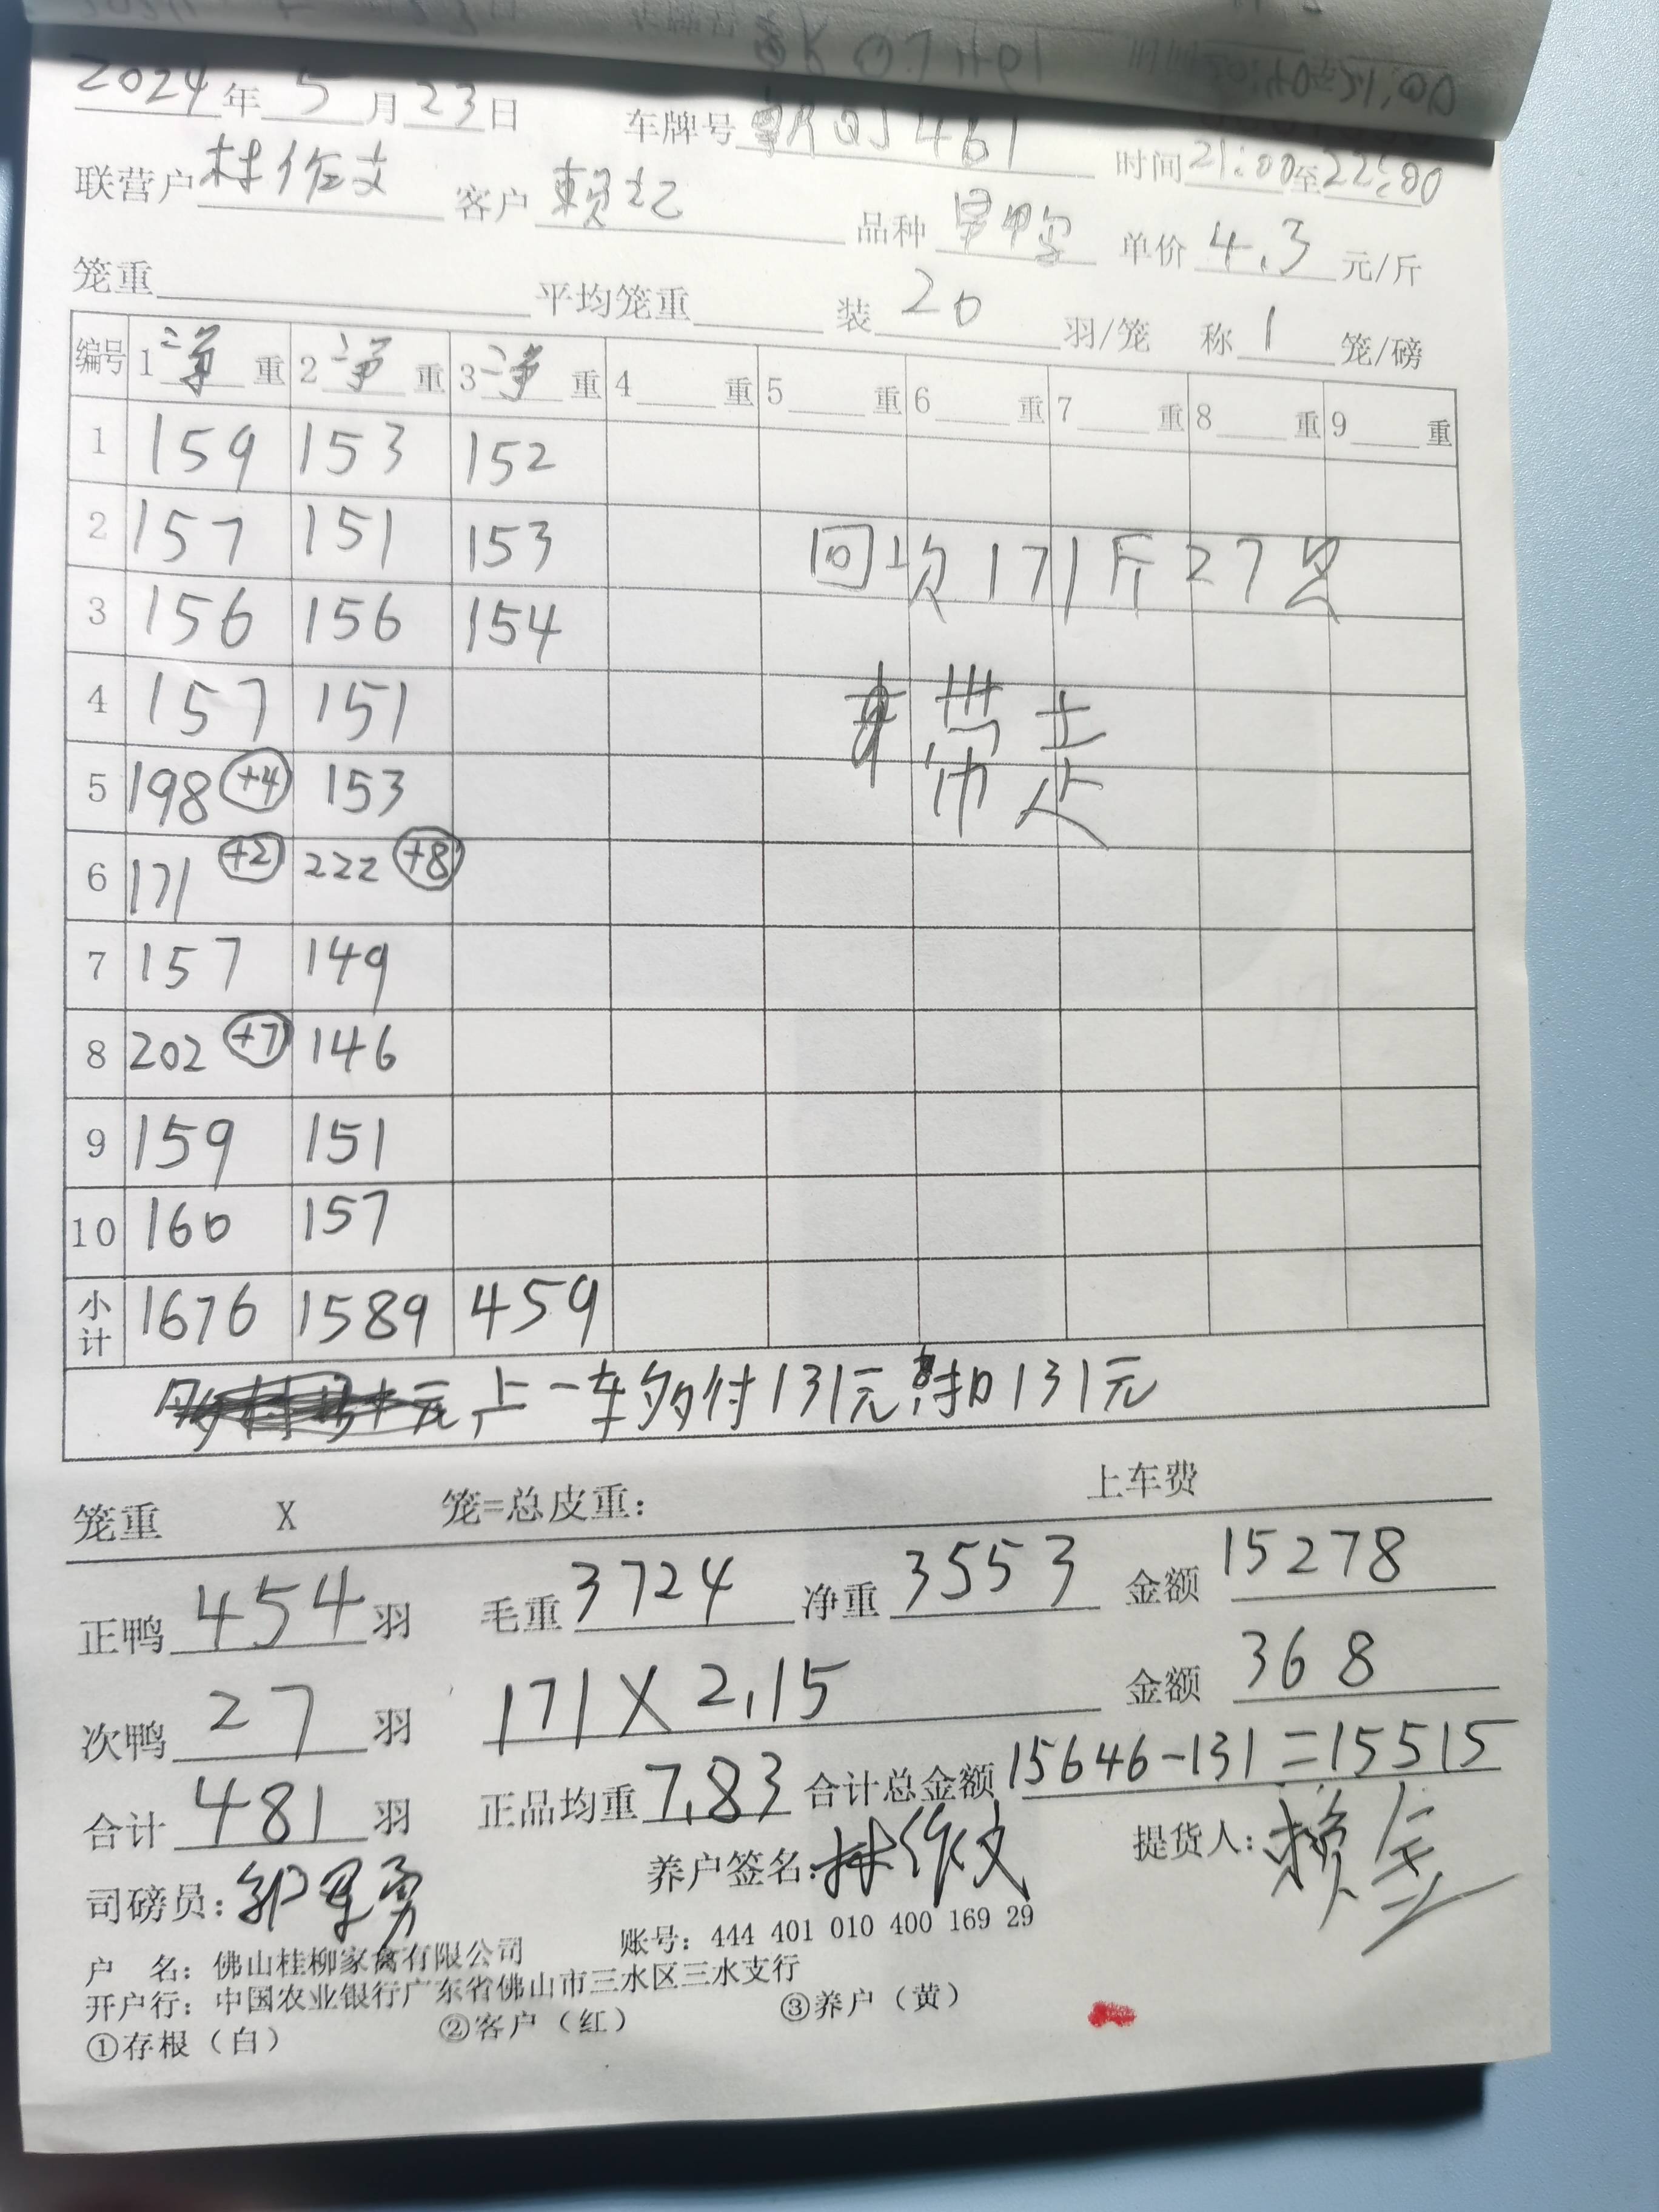 2024年5月23日 车牌号 461 时间21:00至22:00
联营户林作文 客户赖 品种旱鸭 单价4.3元/斤
笼重 平均笼重 装20羽/笼 称1笼/磅
编号 1净重 2净重 3净重 4重 5重 6重 7重 8重 9重
1 159 153 152
2 157 151 153 回收171斤27只
3 156 156 154
4 157 151 带走
5 198 +4 153
6 171 +2 222 +8
7 157 149
8 202 +7 146
9 159 151
10 160 157
小计 1676 1589 459
上一车多付131元 扣131元
笼重 X 笼=总皮重: 上车费
正鸭454羽 毛重3724 净重3553 金额15278
次鸭27羽 171X2.15 金额368
合计481羽 正品均重7.83 合计总金额15646-131=15515
司磅员: 养户签名:林作文 提货人:赖
户 名: 佛山桂柳家禽有限公司 账号: 444 401 010 400 169 29
开户行: 中国农业银行广东省佛山市三水区三水支行
①存根（白） ②客户（红） ③养户（黄）